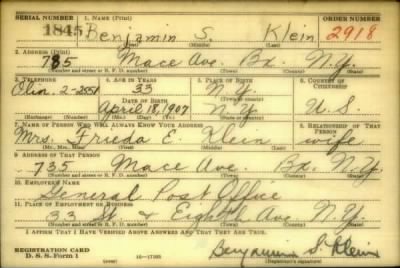 SERIAL NUMBER 1. NAME (Print) ORDER NUMBER
1845 Benjamin S. Klein 2918
(First) (Middle) (Last)
2. ADDRESS (Print)
735 Mace Ave. Bx. N.Y.
(Number and street or R. F. D. number) (Town) (County) (State)
3. TELEPHONE 4. AGE IN YEARS 5. PLACE OF BIRTH 6. COUNTRY OF CITIZENSHIP
Olin. 2-2551 33 N.Y.
DATE OF BIRTH (Town or county)
April 18, 1907 N.Y. U.S.
(Exchange) (Number) (Mo.) (Day) (Yr.) (State or country)
7. NAME OF PERSON WHO WILL ALWAYS KNOW YOUR ADDRESS 8. RELATIONSHIP OF THAT PERSON
Mrs. Frieda E. Klein wife
(Mr., Mrs., Miss) (First) (Middle) (Last)
9. ADDRESS OF THAT PERSON
735 Mace Ave. Bx. N.Y.
(Number and street or R. F. D. number) (Town) (County) (State)
10. EMPLOYER'S NAME
General Post Office
11. PLACE OF EMPLOYMENT OR BUSINESS
33 St. & Eighth Ave. N.Y.
(Number and street or R. F. D. number) (Town) (County) (State)
I AFFIRM THAT I HAVE VERIFIED ABOVE ANSWERS AND THAT THEY ARE TRUE.
REGISTRATION CARD
D. S. S. Form 1 (over) 16-17105 Benjamin S. Klein
(Registrant's signature)